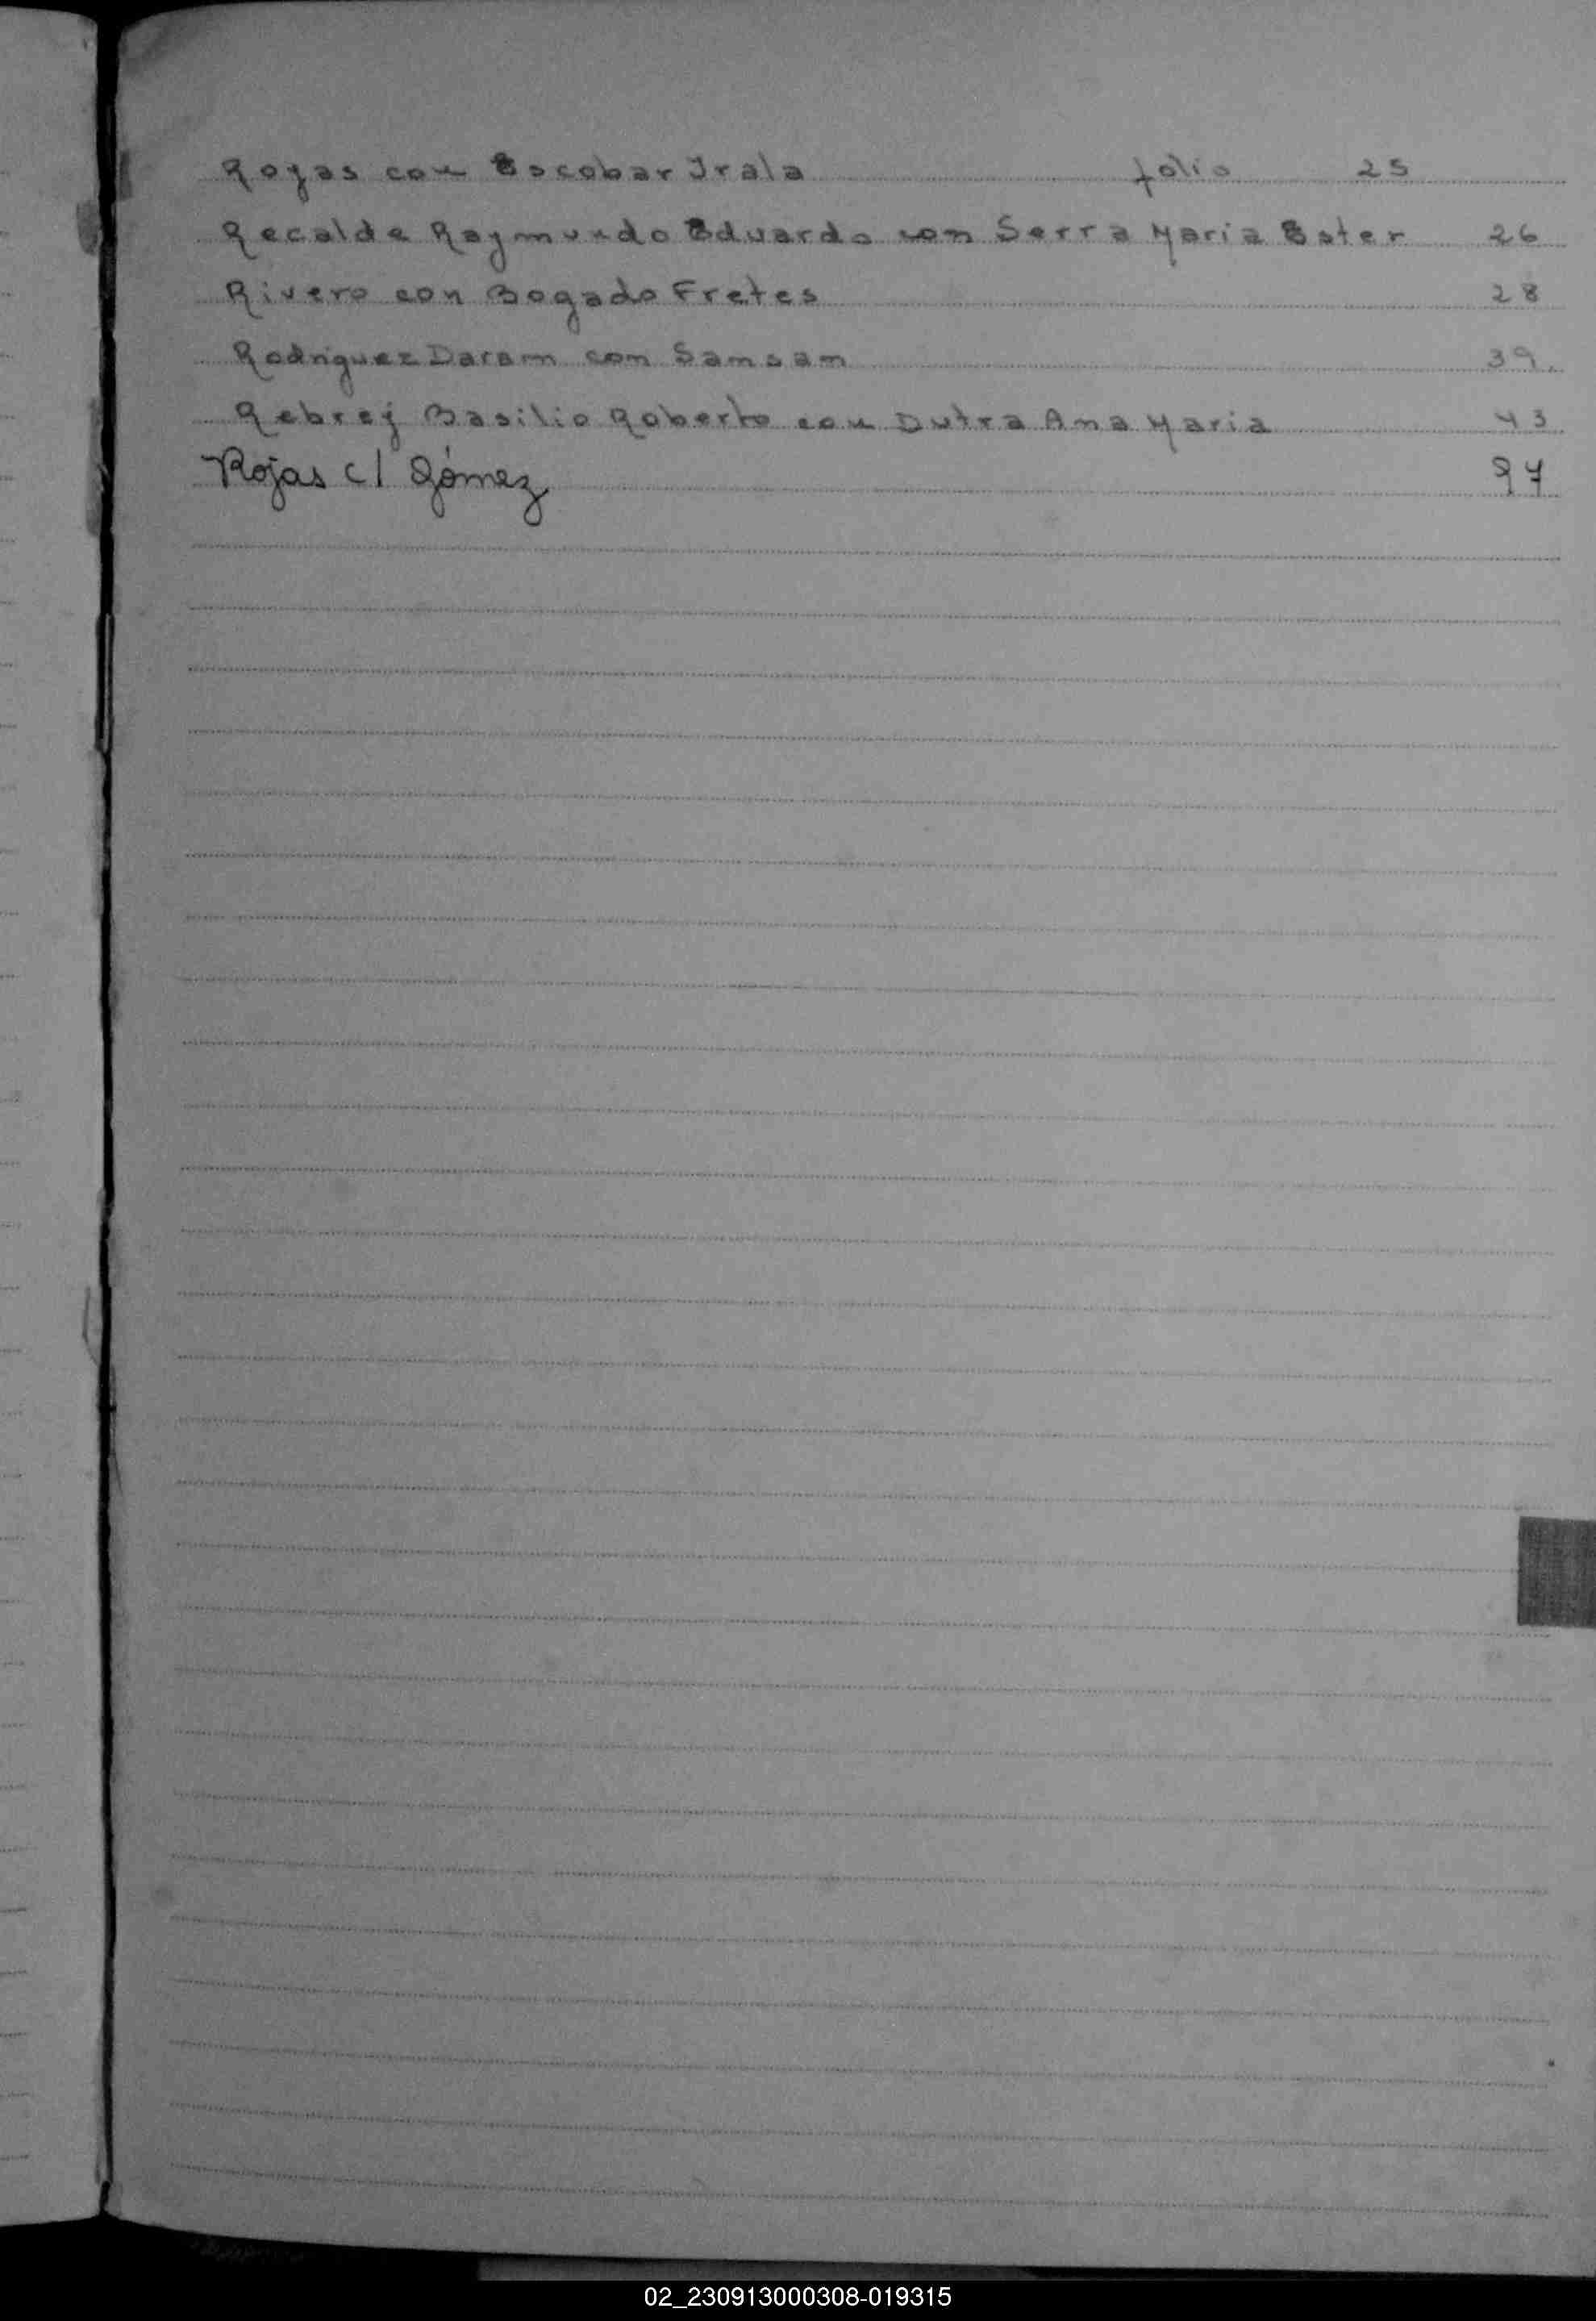 Rojas con Escobar Irala folio 25
Recalde Raymundo Eduardo con Serra Maria Ester 26
Rivero con Bogado Fretes 28
Rodriguez Daram con Samsam 39.
Rebrej Basilio Roberto con Dutra Ana Maria 43
Rojas c/ Gómez 97
02_230913000308-019315